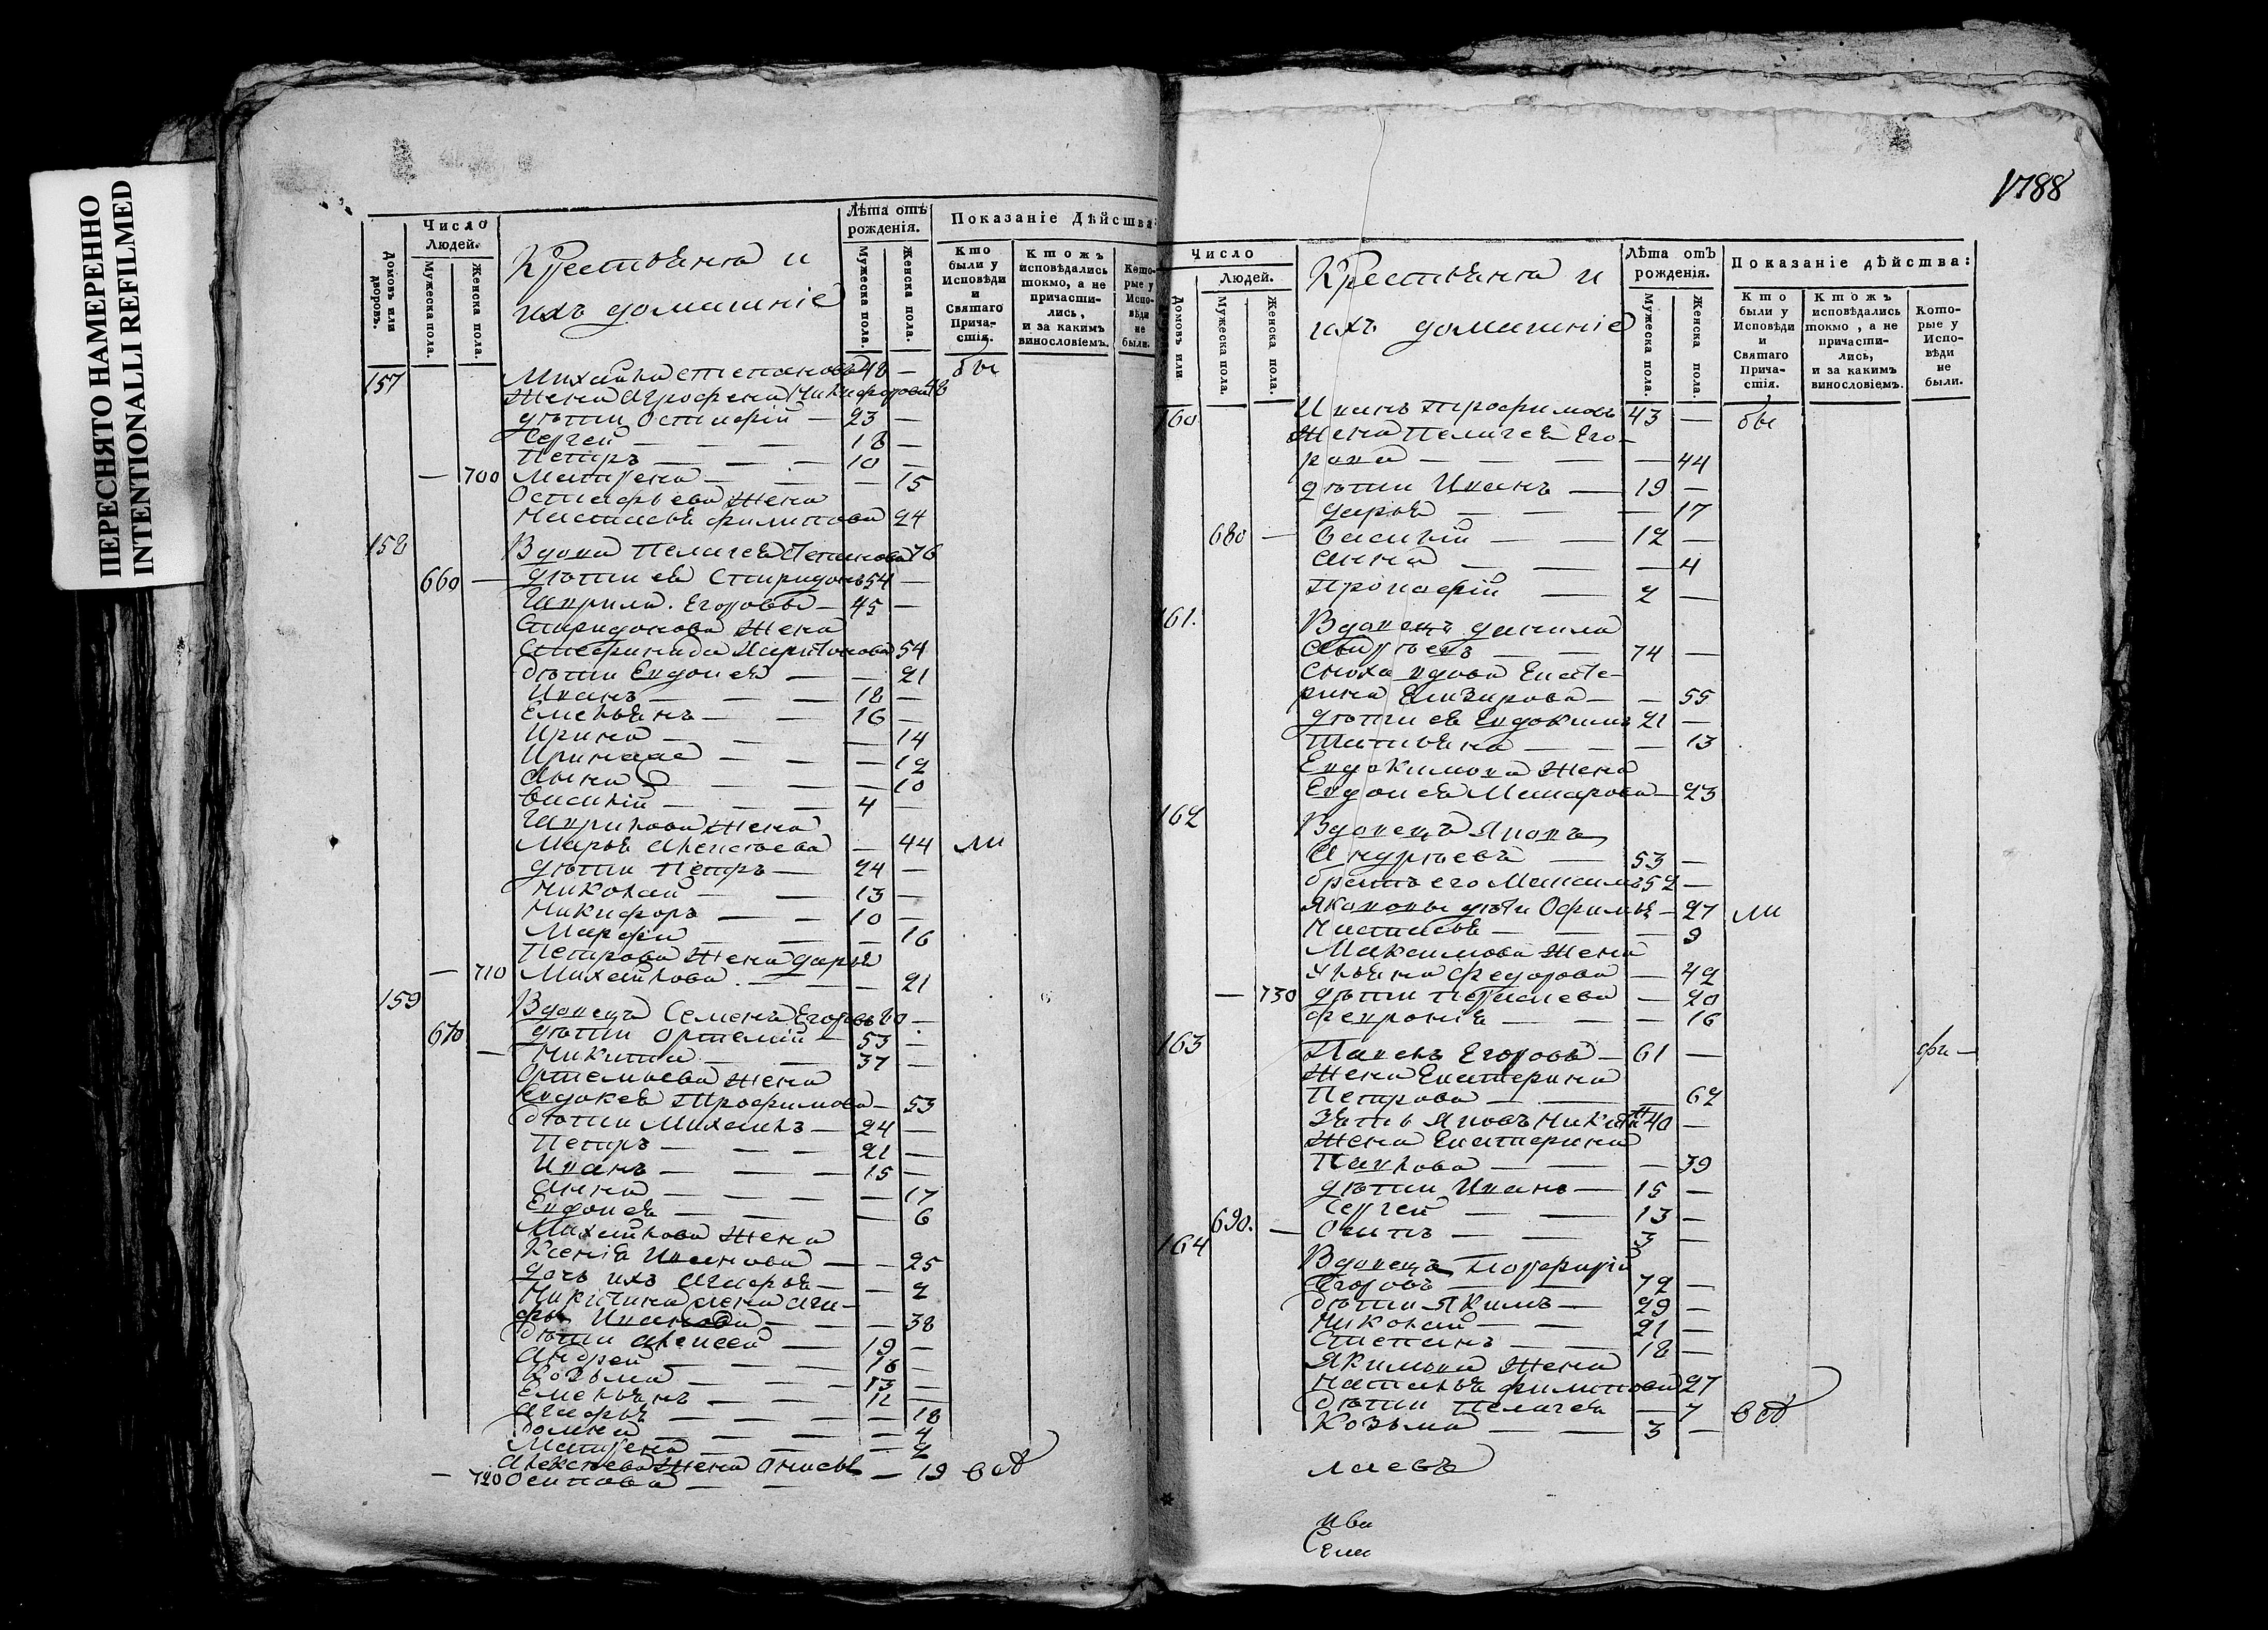 ПЕРЕСНЯТО НАМЕРЕННО
INTENTIONALLI REFILMED
Число Людей.
Домовъ или дворовъ.
Мужеска пола.
Женска пола.
Крестьяна и
ихъ домашніе
Лѣта отъ рожденія.
Мужеска пола.
Женска пола.
Показаніе Дѣйства:
Кто были у Исповѣди и Святаго Причастія.
Ктожъ исповѣдались токмо, а не причастились, и за какимъ винословіемъ.
Которые у Исповѣди не были.
157 Михайла Степановъ 48 — бы
Жена Агрофена Никифорова 48
дѣти Остафій — 23 —
Сергей — — 18 —
Петръ — — — 10 —
— 700 Матрена — — — 15
Остафьева Жена
Настасья филипова 24
158 Вдова Пелагея Степанова 76
660 — дѣти ея Спиридонъ 54 —
Гаврила Егоровы — 45 —
Спиридонова Жена
Стефанида Харитонова 54
дѣти Евдокея — — 21
Иванъ — — 18 —
Емельянъ — — 16 —
Ирина — — — 14
Иринаа — — — 12
Анна — — — 10
Василій — — — 4 —
Гаврилова Жена
Марья Алексеева — 44 ли
дѣти Петръ — 24 —
Николай — — 13 —
Никифоръ — — 10 —
Марфа — — — 16
Петрова Жена дарья
— 710 Михайлова — — 21
159 Вдовецъ Семенъ Егоровъ 80 —
670 дѣти Ортемій — 53 —
— Никита — — 37 —
Ортемьева Жена
Евдокея Трофимова — 53
дѣти Михаилъ — 24 —
Петръ — — — 21 —
Иванъ — — — 15 —
Анна — — — — 17
Евдокея — — — 6
Михайлова Жена
Ксенія Иванова — — 25
дочь ихъ Агафья — — 2
Никитина жена Ага-
фья Иванова — — — 38
дѣти Алексей — 19 —
Андрей — — — 16 —
Козьма — — — 13 —
Емельянъ — — — 12 —
Агафья — — — — 18
Домна — — — — 4
Матрена — — — 2
Алексеева Жена Анисья — 19 всѣ
— 720 Осипова — —
1788
Число Людей.
Домовъ или
Мужеска пола.
Женска пола.
Крестьяна и
ихъ домашніе
Лѣта отъ рожденія.
Мужеска пола.
Женска пола.
Показаніе дѣйства:
Кто были у Исповѣди и Святаго Причастія.
Ктожъ исповѣдались токмо, а не причастились, и за какимъ винословіемъ.
Которые у Исповѣди не были.
160 Иванъ Трофимовъ 43 — бы
Жена Пелагея Его-
рова — — — — 44
дѣти Иванъ — 19 —
дарья — — — 17
680 — Василій — — 12 —
Анна — — — 4
Прокофій — 2 —
161. Вдовецъ данила
— — 74 —
Сноха вдова Екате-
рина Елизарова — — 55
дѣти ея Евдокимъ 21 —
Татьяна — — — 13
Евдокимова Жена
Евдокея Макарова — 23
162 Вдовецъ Яковъ
Андреевъ — 53 —
братъ его Максимъ 52 —
Яковлевы дѣти Офимья — 27 ли
Настасья — — — 9
Максимова Жена
Ульяна федорова — 42
— 730 дѣти Прасковья — 20
февронія — — — 16
163 Павелъ Егоровъ — 61 — фи —
Жена Екатерина
Петрова — — — 62
Зять Яковъ Никитинъ 40 —
Жена Екатерина
Павлова — — — 39
дѣти Иванъ — 15 —
Сергей — — 13 —
690. — Осипъ — — 3 —
164 Вдовецъ Порфирій
Егоровъ — — 72 —
дѣти Якимъ — 29 —
Николай — — 21 —
Степанъ — — 18 —
Якимова Жена
Наталья филипова 27
дѣти Пелагея — 7 всѣ
Козьма — — 3 —
лаевъ
ива
Ели